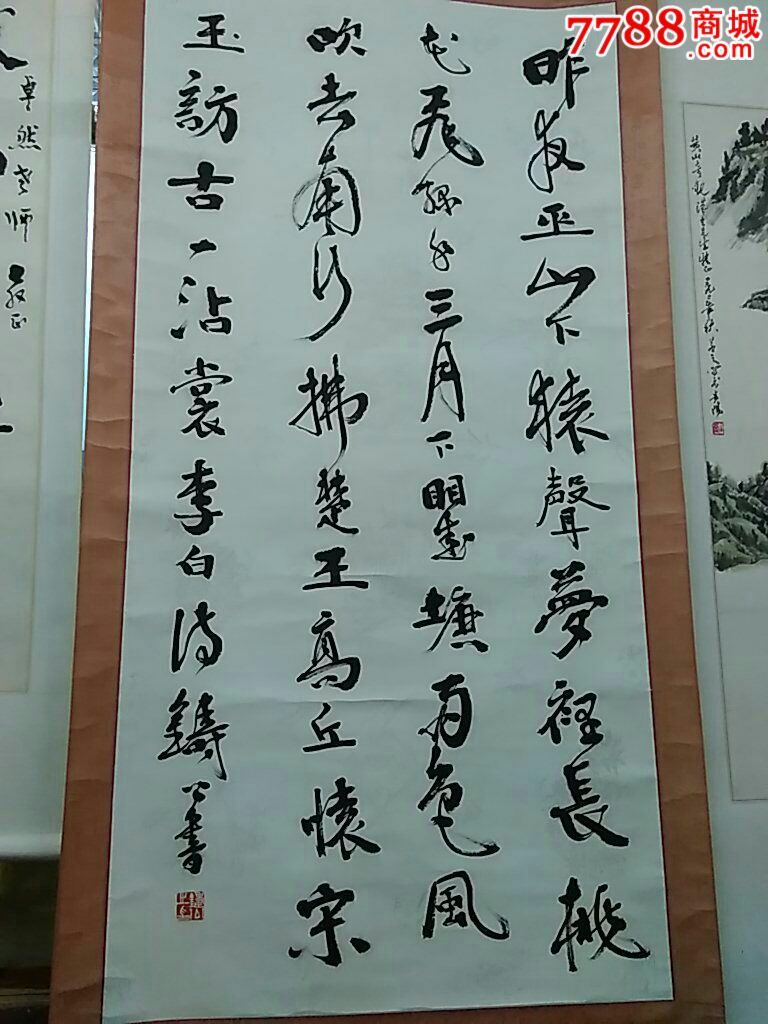 7788商城
.com
昨夜巫山下猿聲夢裡長桃
花飛綠水三月下瞿塘雨色風
吹去南行拂楚王高丘懷宋
玉訪古一沾裳李白詩鑄公書
卓然老師教正